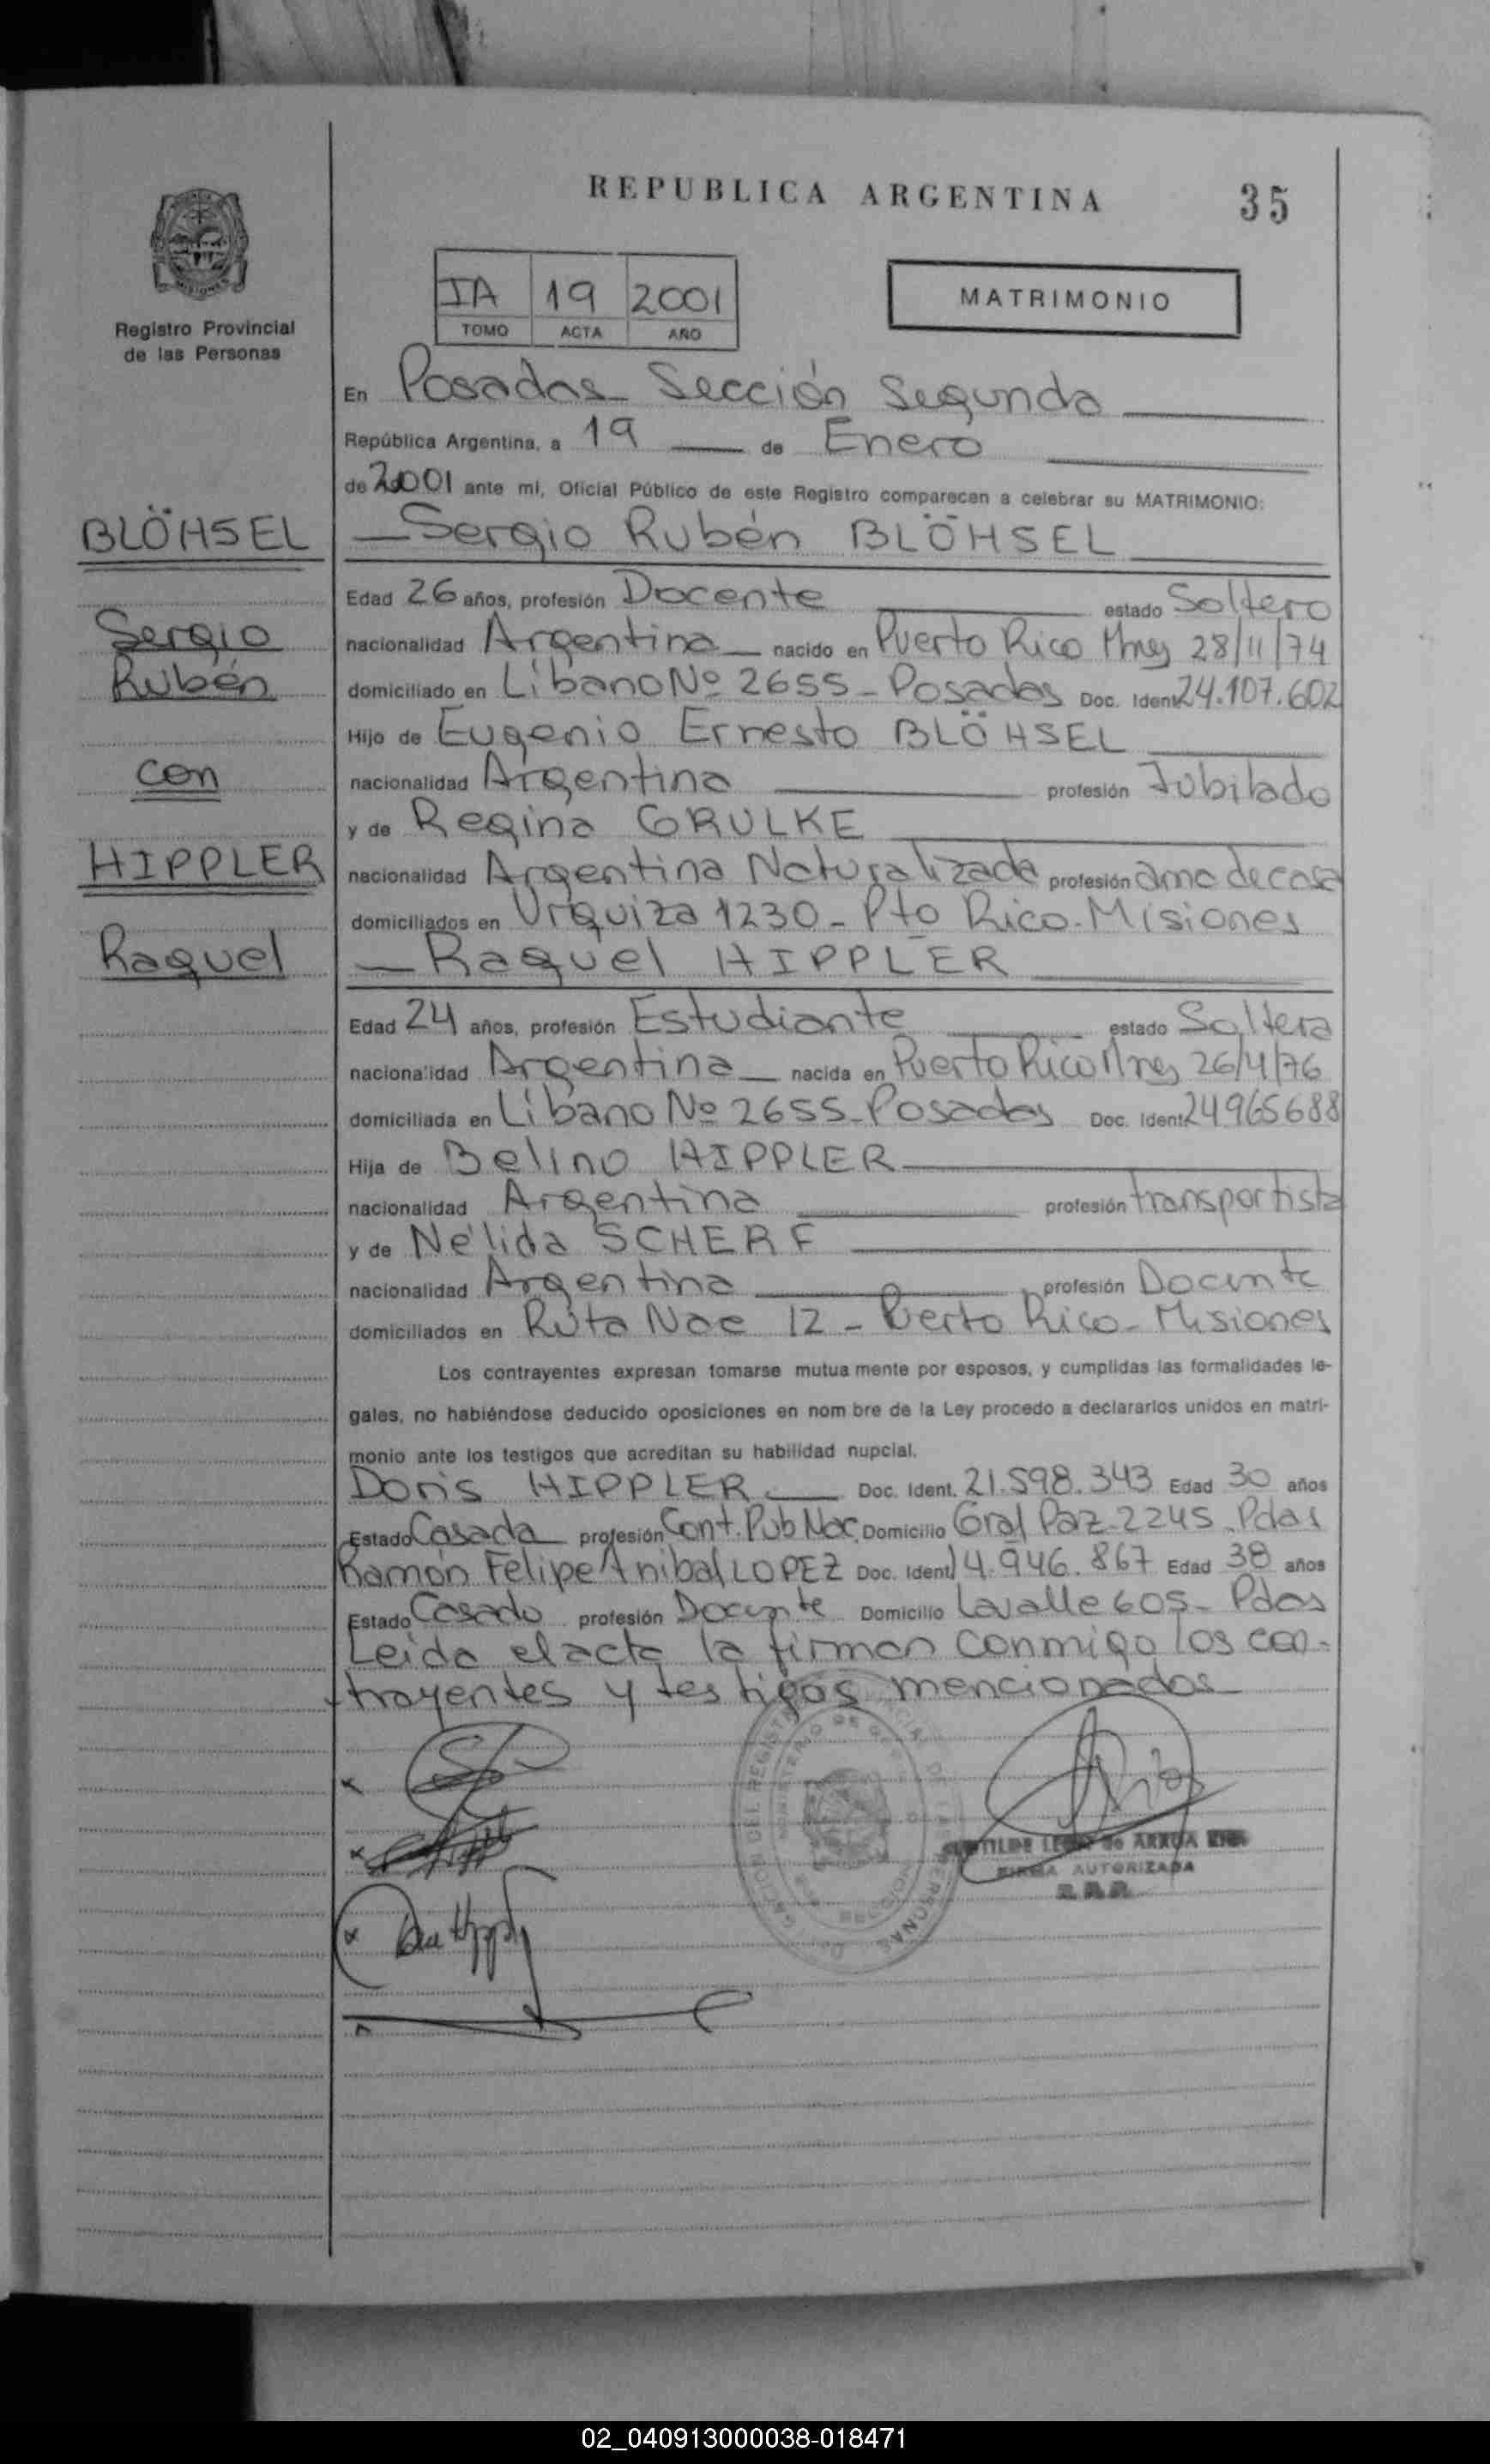 REPUBLICA ARGENTINA
35
Registro Provincial
de las Personas
IA 19 2001
TOMO ACTA AÑO
MATRIMONIO
En Posadas - Sección Segunda
República Argentina, a 19 de Enero
de 2001 ante mi, Oficial Público de este Registro comparecen a celebrar su MATRIMONIO:
BLÖHSEL
Sergio
Rubén
con
HIPPLER
Raquel
Sergio Rubén BLÖHSEL
Edad 26 años, profesión Docente estado Soltero
nacionalidad Argentina nacido en Puerto Rico Mnes 28/11/74
domiciliado en Líbano Nº 2655 - Posadas Doc. Ident. 24.107.602
Hijo de Eugenio Ernesto BLÖHSEL
nacionalidad Argentina profesión Jubilado
y de Regina GRULKE
nacionalidad Argentina Naturalizada profesión ama de casa
domiciliados en Urquiza 1230 - Pto Rico - Misiones
Raquel HIPPLER
Edad 24 años, profesión Estudiante estado Soltera
nacionalidad Argentina nacida en Puerto Rico Mnes 26/4/76
domiciliada en Líbano Nº 2655 - Posadas Doc. Ident. 24965688
Hija de Belino HIPPLER
nacionalidad Argentina profesión transportista
y de Nélida SCHERF
nacionalidad Argentina profesión Docente
domiciliados en Ruta Nac 12 - Puerto Rico - Misiones
Los contrayentes expresan tomarse mutua mente por esposos, y cumplidas las formalidades le-
gales, no habiéndose deducido oposiciones en nom bre de la Ley procedo a declararlos unidos en matri-
monio ante los testigos que acreditan su habilidad nupcial.
Doris HIPPLER Doc. Ident. 21.598.343 Edad 30 años
Estado Casada profesión Cont. Pub Nac. Domicilio Gral Paz 2245 - Pdas
Ramón Felipe Anibal LOPEZ Doc. Ident. 14.946.867 Edad 38 años
Estado Casado profesión Docente Domicilio Lavalle 605 - Pdas
Leida el acta la firman conmigo los con-
trayentes y testigos mencionados
de ARRUA
FIRMA AUTORIZADA
02_040913000038-018471